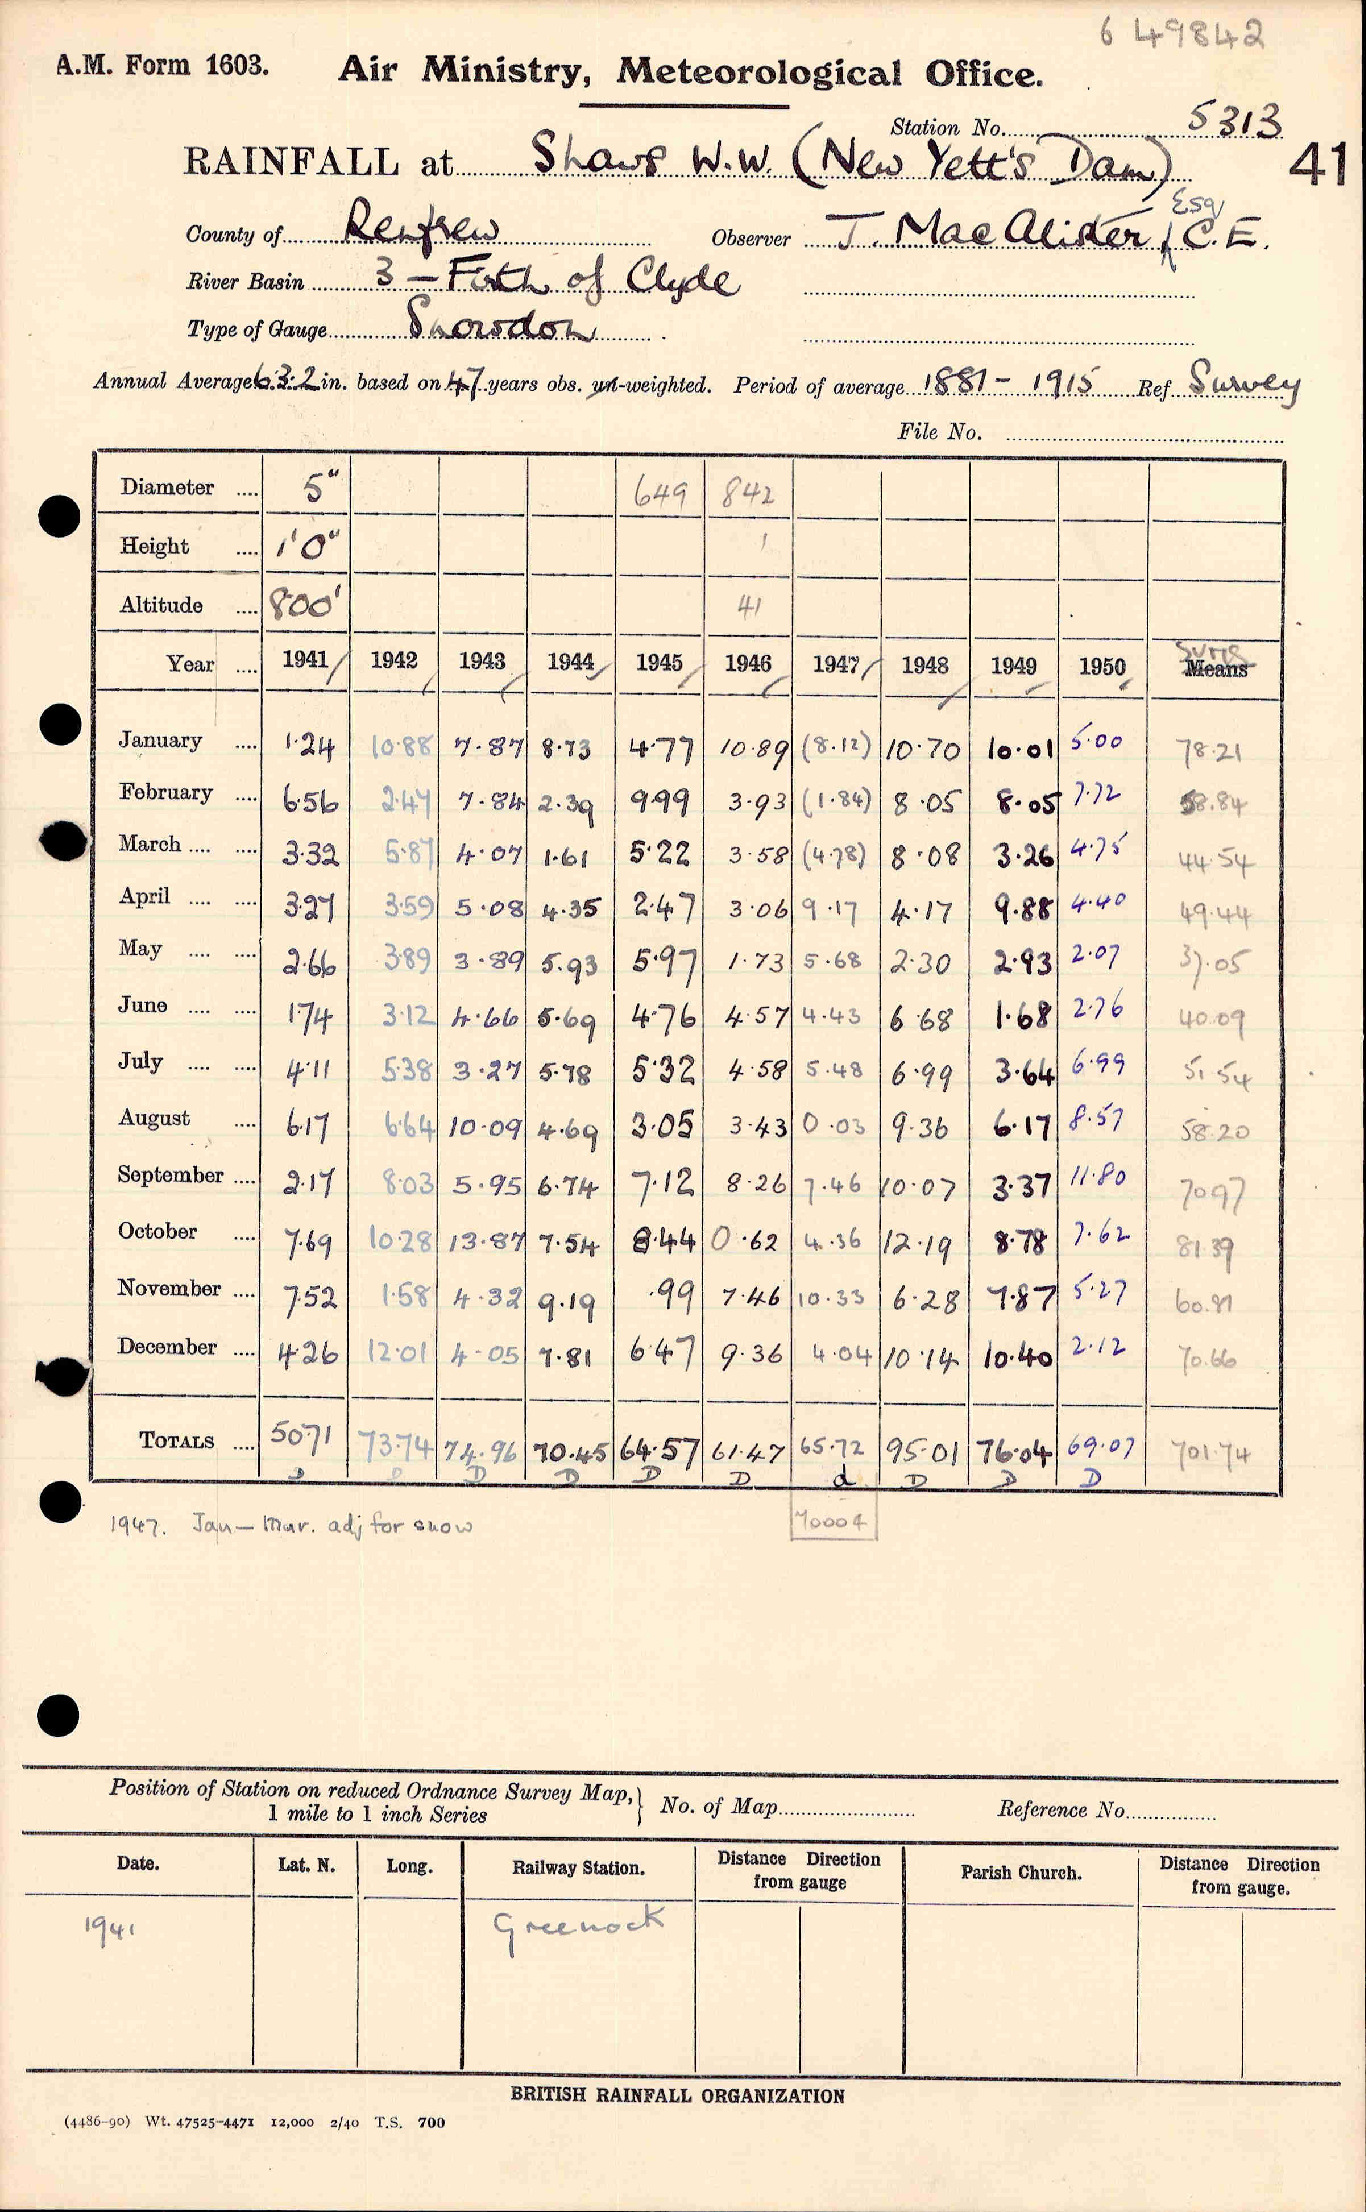 6 49842
A.M. Form 1603. Air Ministry, Meteorological Office.
Station No. 5313
RAINFALL at Shaws W.W. (New Yett's Dam) 41
County of Renfrew Observer J. MacAlister, Esq C.E.
River Basin 3 — Firth of Clyde
Type of Gauge Snowdon
Annual Average 63.2 in. based on 47 years obs. un-weighted. Period of average 1881 - 1915 Ref Survey
File No.
Diameter .... 5" 649 842
Height .... 1'0" 1
Altitude .... 800' 41
Year .... 1941 1942 1943 1944 1945 1946 1947 1948 1949 1950 Sums Means
January .... 1.24 10.88 7.87 8.73 4.77 10.89 (8.12) 10.70 10.01 5.00 78.21
February .... 6.56 2.47 7.84 2.39 9.99 3.93 (1.84) 8.05 8.05 7.72 58.84
March .... .... 3.32 5.87 4.07 1.61 5.22 3.58 (4.78) 8.08 3.26 4.75 44.54
April .... .... 3.27 3.59 5.08 4.35 2.47 3.06 9.17 4.17 9.88 4.40 49.44
May .... .... 2.66 3.89 3.89 5.93 5.97 1.73 5.68 2.30 2.93 2.07 37.05
June .... .... 1.74 3.12 4.66 5.69 4.76 4.57 4.43 6.68 1.68 2.76 40.09
July .... .... 4.11 5.38 3.27 5.78 5.32 4.58 5.48 6.99 3.64 6.99 51.54
August .... 6.17 6.64 10.09 4.69 3.05 3.43 0.03 9.36 6.17 8.57 58.20
September .... 2.17 8.03 5.95 6.74 7.12 8.26 7.46 10.07 3.37 11.80 70.97
October .... 7.69 10.28 13.87 7.54 8.44 0.62 4.36 12.19 8.78 7.62 81.39
November .... 7.52 1.58 4.32 9.19 .99 7.46 10.33 6.28 7.87 5.27 60.81
December .... 4.26 12.01 4.05 7.81 6.47 9.36 4.04 10.14 10.40 2.12 70.66
TOTALS .... 50.71 73.74 74.96 70.45 64.57 61.47 65.72 95.01 76.04 69.07 701.74
D D D D D D d D D D
1947. Jan — Mar. adj for snow 70004
Position of Station on reduced Ordnance Survey Map, 1 mile to 1 inch Series } No. of Map Reference No.
Date. Lat. N. Long. Railway Station. Distance Direction from gauge Parish Church. Distance Direction from gauge.
1941 Greenock
BRITISH RAINFALL ORGANIZATION
(4486-90) Wt. 47525-4471 12,000 2/40 T.S. 700